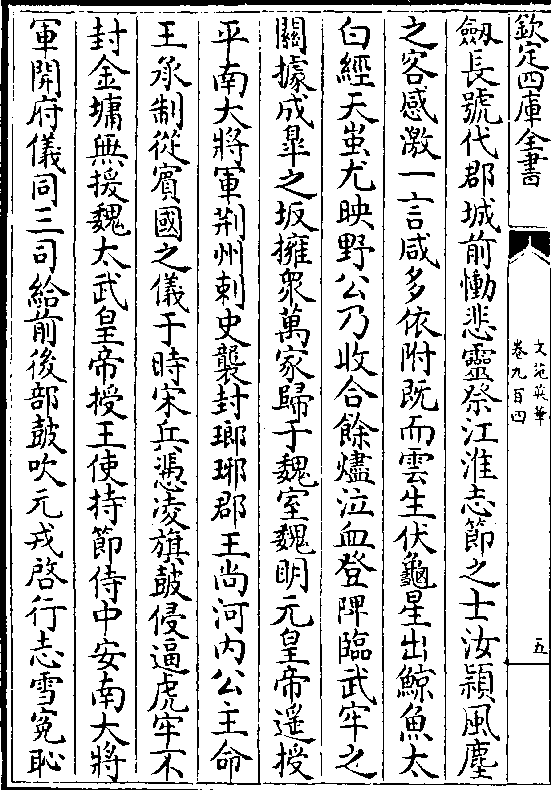 欽定四庫全書
文苑英華
卷九百四
五
劔長號代郡城前慟悲靈祭江淮志節之士汝潁風塵
之客感激一言咸多依附既而雲生伏龜星出鯨魚太
白經天蚩尤映野公乃收合餘燼泣血登陴臨武牢之
關據成臯之坂擁衆萬家歸于魏室魏明元皇帝遥授
平南大將軍荆州刺史襲封瑯琊郡王尚河内公主命
王承制從賓國之儀于時宋兵憑凌旗鼓侵逼虎牢不
封金墉無援魏太武皇帝授王使持節侍中安南大將
軍開府儀同三司給前後部鼓吹元戎啓行志雪寃恥